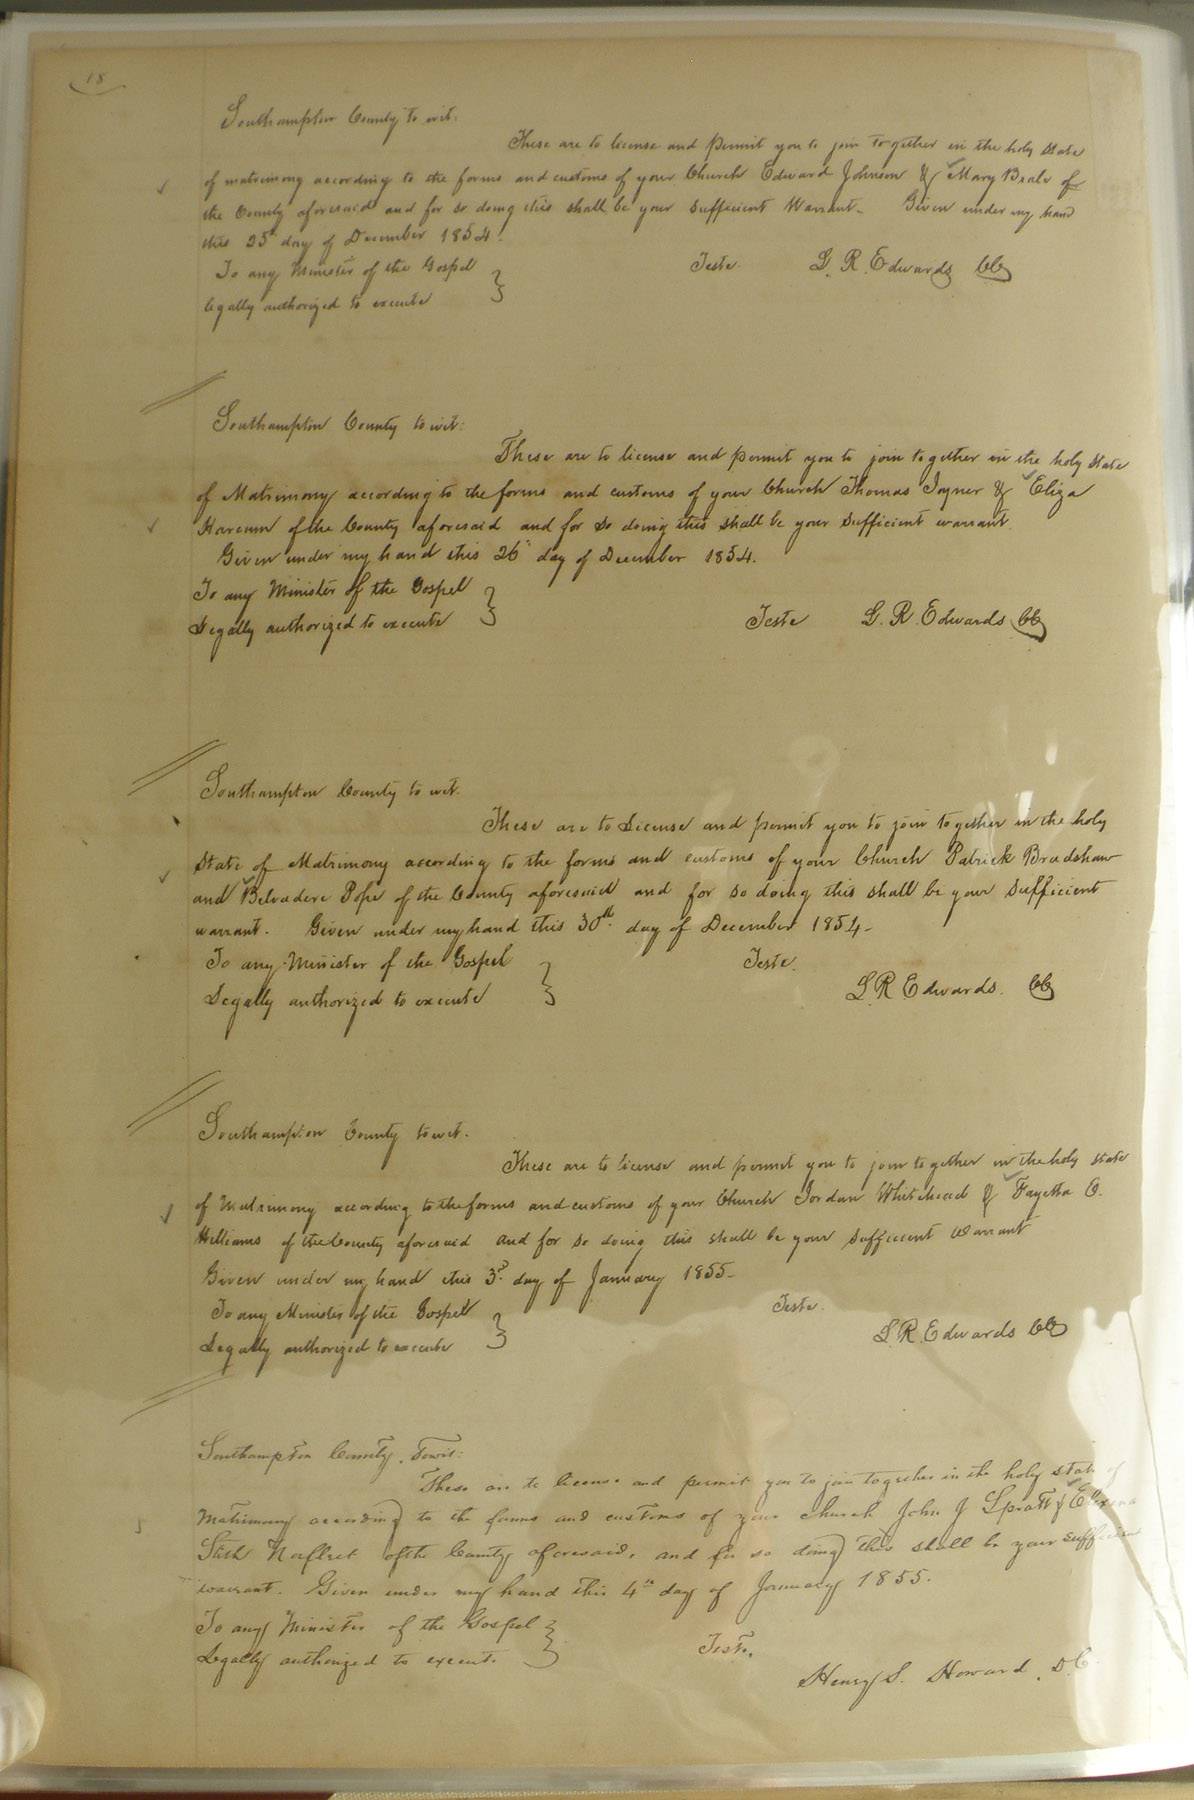 18
Southampton County to wit:
These are to license and permit you to join together in the holy state
of matrimony according to the forms and customs of your Church Edward Johnson & Mary Beale of
the County aforesaid and for so doing this shall be your sufficient Warrant. Given under my hand
this 25th day of December 1854.
To any Minister of the Gospel
legally authorized to execute
Teste. L. R. Edwards CC
Southampton County to wit:
These are to license and permit you to join together in the holy state
of Matrimony according to the forms and customs of your Church Thomas Joyner & Eliza
of the County aforesaid and for so doing this shall be your sufficient warrant.
Given under my hand this 26" day of December 1854.
To any Minister of the Gospel
Legally authorized to execute
Teste L. R. Edwards CC
Southampton County to wit.
These are to License and permit you to join together in the holy
State of Matrimony according to the forms and customs of your Church Patrick Bradshaw
and Belvadere Pope of the County aforesaid and for so doing this shall be your sufficient
warrant. Given under my hand this 30th day of December 1854.
To any Minister of the Gospel
Legally authorized to execute
Teste.
L R Edwards. CC
Southampton County to wit.
These are to license and permit you to join together in the holy state
of Matrimony according to the forms and customs of your Church Jordan Whitehead & Fayetta O.
Williams of the County aforesaid and for so doing this shall be your sufficient warrant
Given under my hand this 3d day of January 1855.
To any Minister of the Gospel
Legally authorized to execute
Teste.
L. R. Edwards CC
Southampton County, Towit:
These are to license and permit you to join together in the holy state of
Matrimony according to the forms and customs of your church John J Spratt &
Stith Norfleet of the County aforesaid, and for so doing this shall be your sufficient
warrant. Given under my hand this 4th day of January 1855.
To any Minister of the Gospel
Legally authorized to execute
Teste,
Henry S. Howard, D.C.